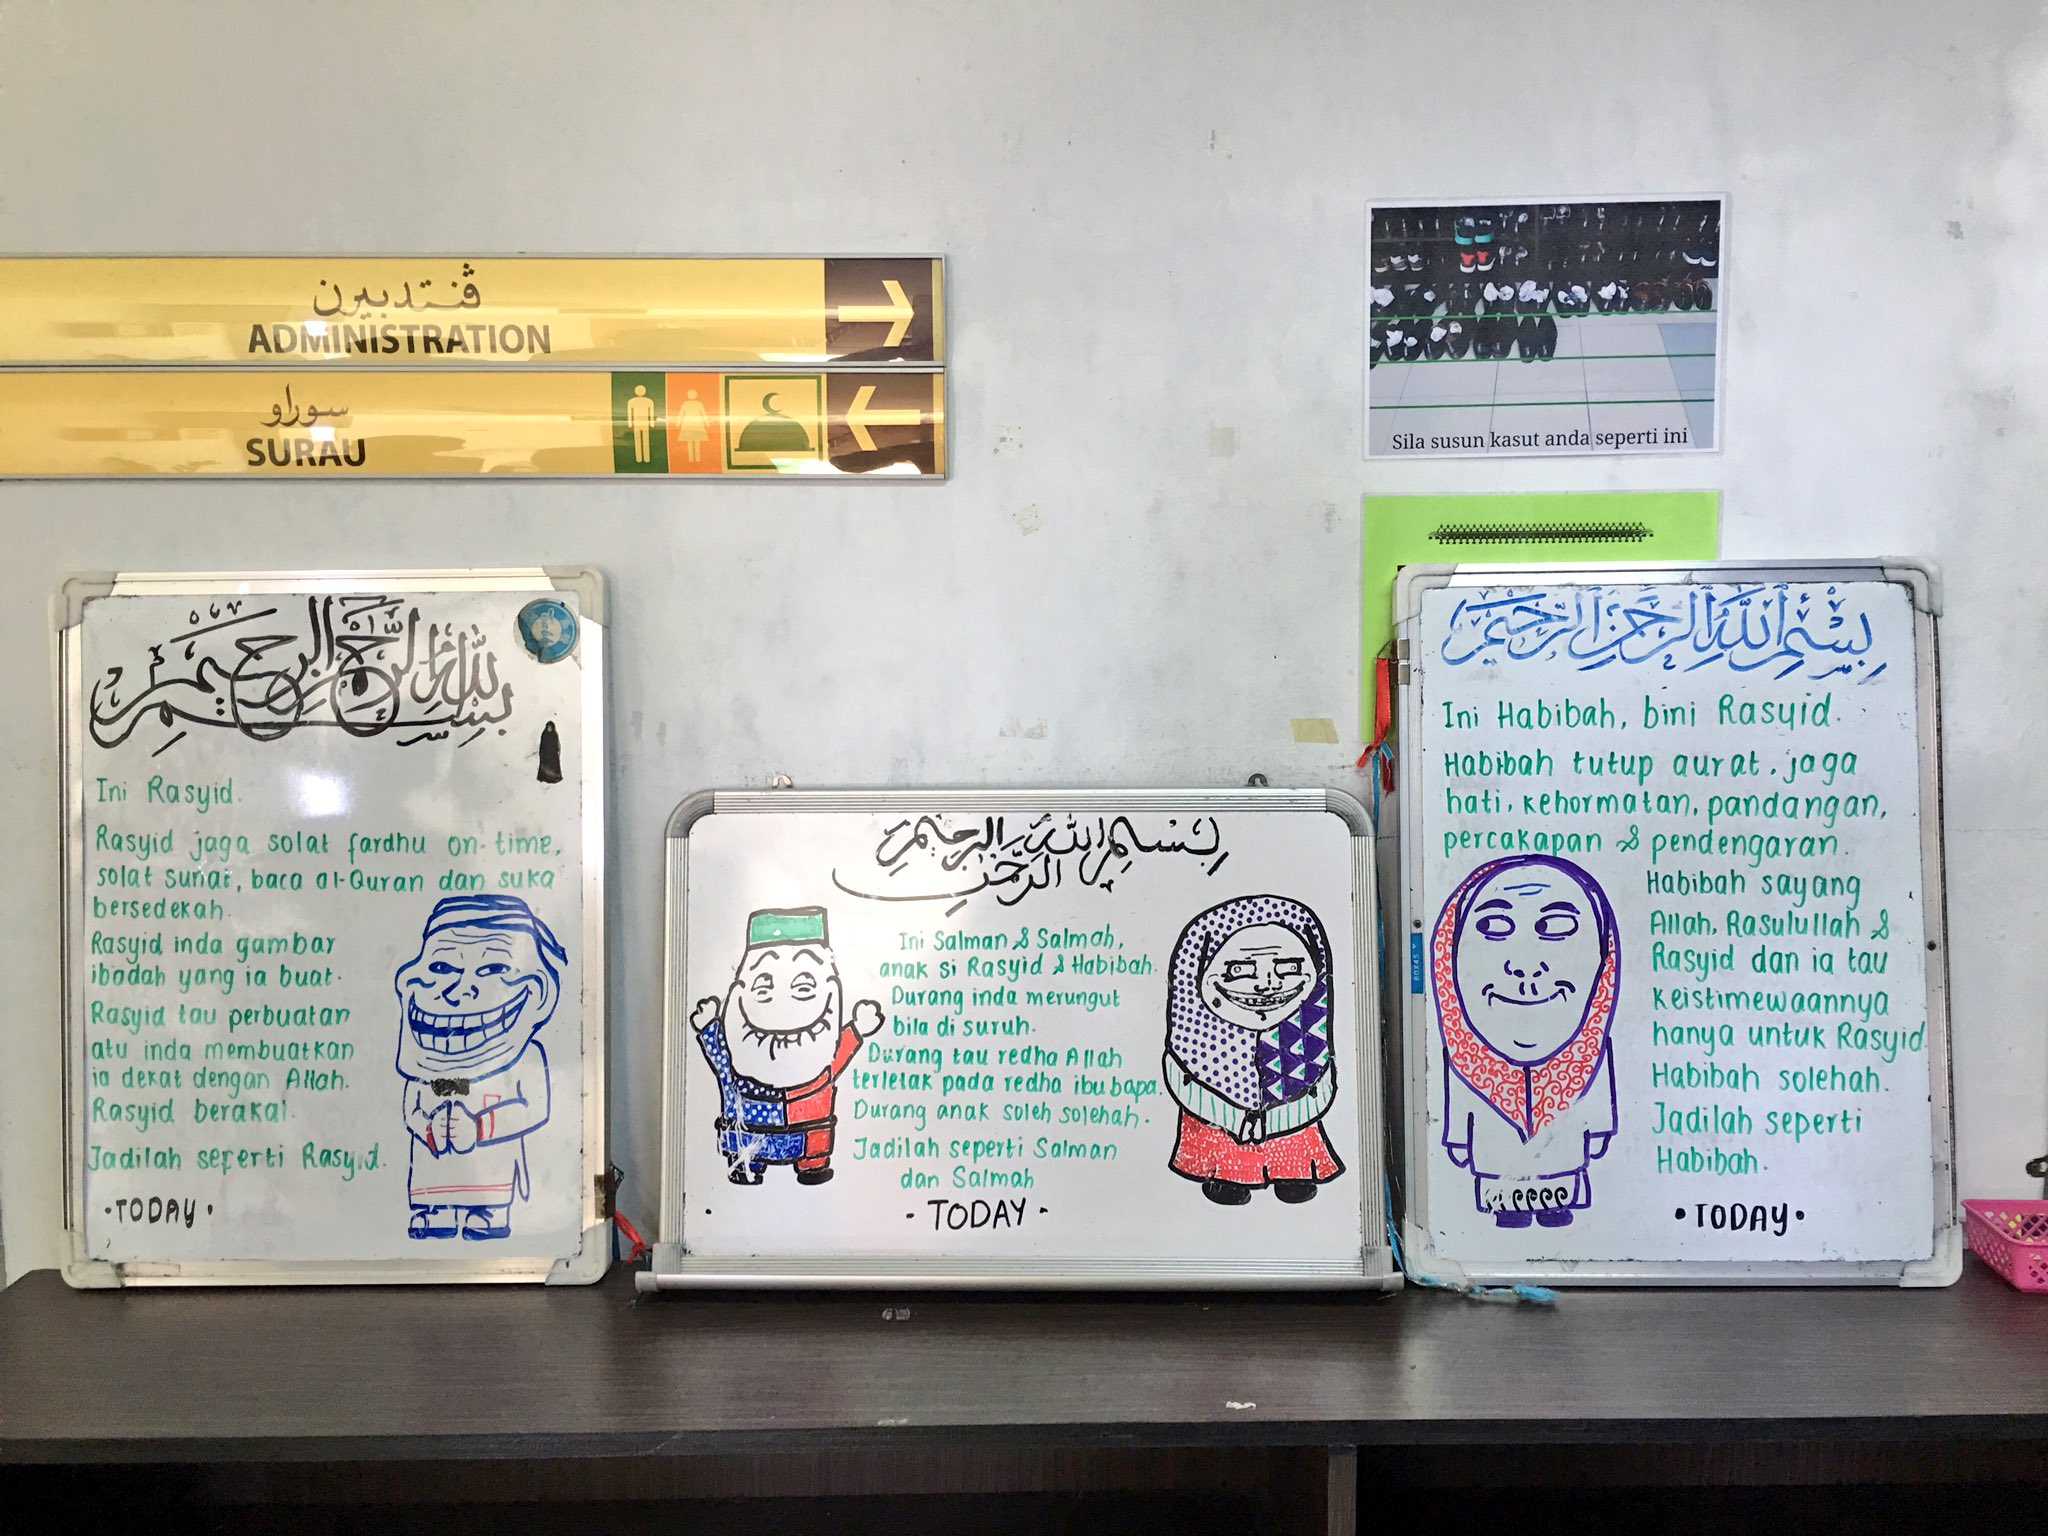 ڤنتدبيرن
ADMINISTRATION
سوراو
SURAU
Sila susun kasut anda seperti ini
بِسْمِ اللهِ الرَّحْمٰنِ الرَّحِيْمِ
Ini Rasyid.
Rasyid jaga solat fardhu on-time,
solat sunat, baca al-Quran dan suka
bersedekah.
Rasyid inda gambar
ibadah yang ia buat.
Rasyid tau perbuatan
atu inda membuatkan
ia dekat dengan Allah.
Rasyid berakal.
Jadilah seperti Rasyid.
•TODAY•
بِسْمِ اللهِ الرَّحْمٰنِ الرَّحِيْمِ
Ini Salman & Salmah,
anak si Rasyid & Habibah.
Durang inda merungut
bila di suruh.
Durang tau redha Allah
terletak pada redha ibu bapa.
Durang anak soleh solehah.
Jadilah seperti Salman
dan Salmah
- TODAY -
بِسْمِ اللهِ الرَّحْمٰنِ الرَّحِيْمِ
Ini Habibah, bini Rasyid.
Habibah tutup aurat, jaga
hati, kehormatan, pandangan,
percakapan & pendengaran.
Habibah sayang
Allah, Rasulullah &
Rasyid dan ia tau
keistimewaannya
hanya untuk Rasyid.
Habibah solehah.
Jadilah seperti
Habibah.
•TODAY•